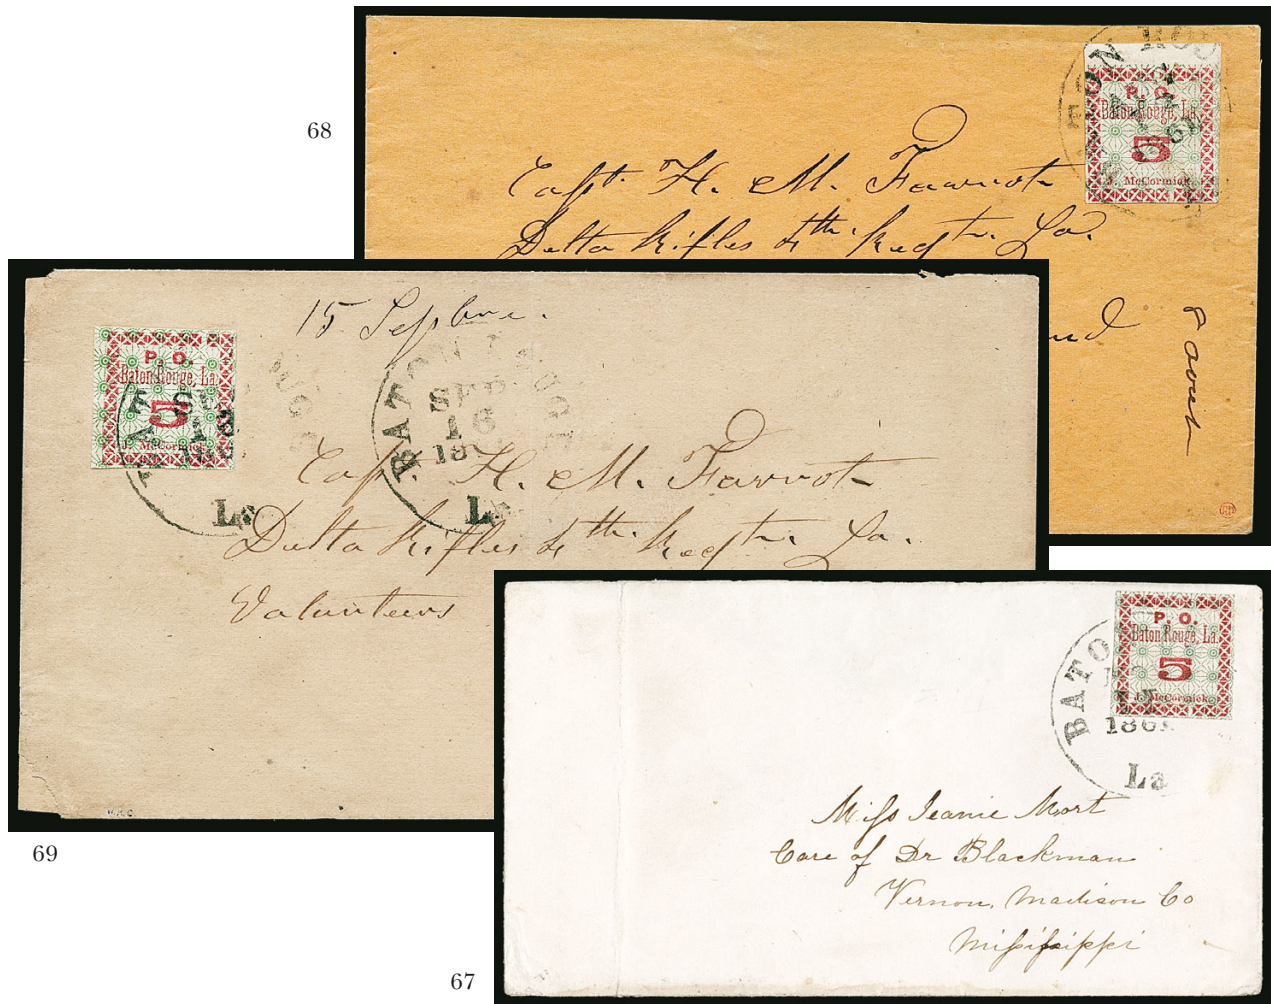 68
BATON ROU
P. O.
Baton Rouge, La.
5
J. McCormick
Capt. H. M. Favrot
Delta Rifles 4th. Regtn. La.
8 août
69
15 Sepbre.
P. O.
Baton Rouge, La.
5
J. McCormick
BATON ROUGE
SEP
16
La
Capt. H. M. Favrot
Delta Rifles 4th. Regtn. La.
Volunteers
67
P. O.
Baton Rouge, La.
5
J. McCormick
BATO
1861
La
Miss Jeanie Mort
Care of Dr Blackman
Vernon, Madison Co
Mississippi